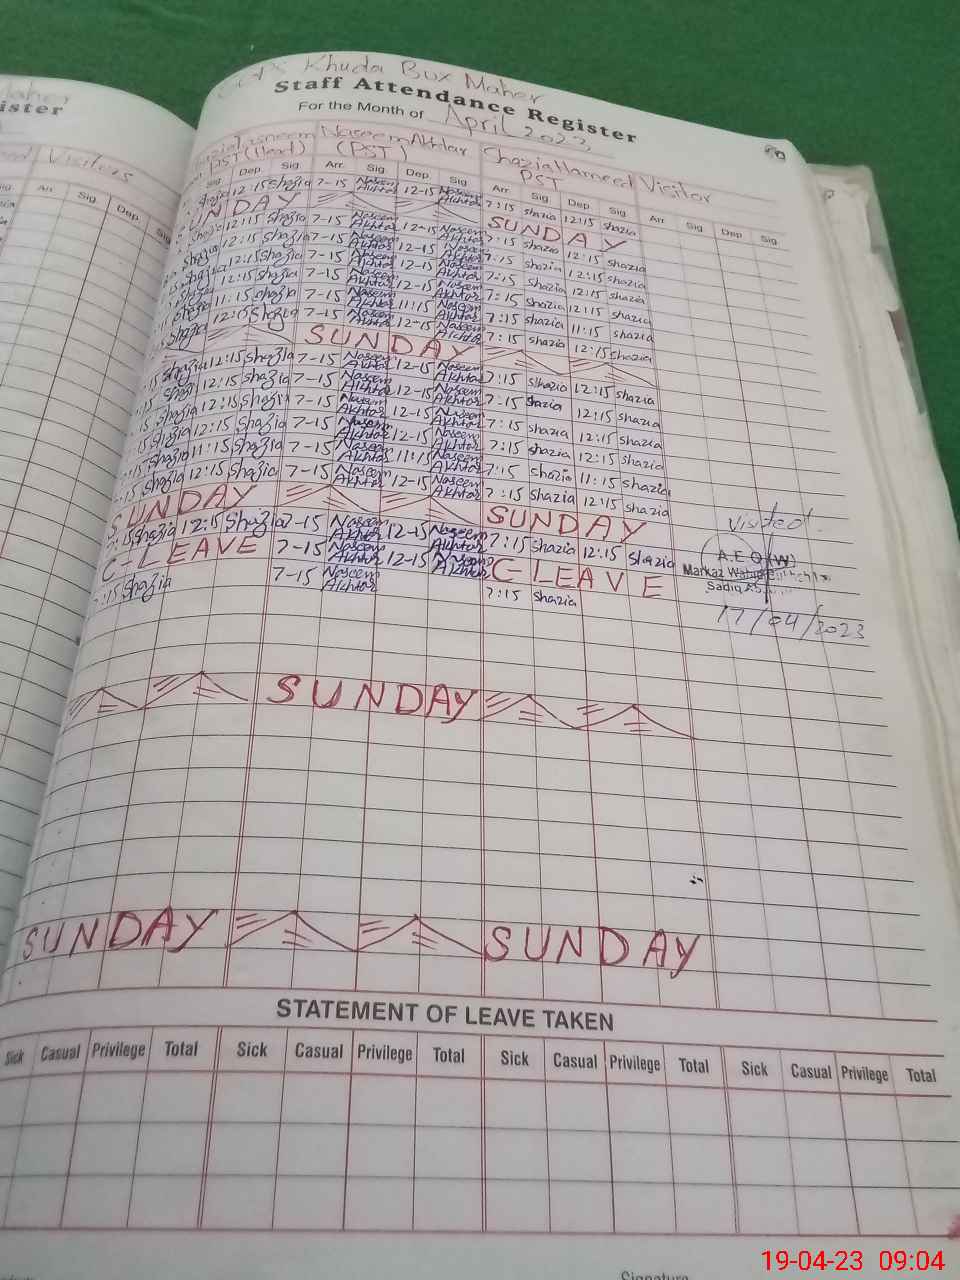 GGPS Khuda Bux Maher
Staff Attendance Register
For the Month of April 2023
ister
Visitors
Tasneem PST (Head) Naseem Akhtar (PST) Shazia Hameed PST Visitor
Arr. Sig Dep. Sig Dep. Sig Arr. Sig Dep. Sig Arr Sig Dep Sig Arr Sig Dep Sig
12:15 Shazia 7-15 Naseem Akhtar 12-15 Naseem Akhtar 7:15 shazia 12:15 shazia
SUNDAY SUNDAY
12:15 Shazia 7-15 Naseem Akhtar 12-15 Naseem Akhtar 7:15 shazia 12:15 shazia
12:15 Shazia 7-15 Naseem Akhtar 12-15 Naseem Akhtar 7:15 shazia 12:15 shazia
12:15 Shazia 7-15 Naseem Akhtar 12-15 Naseem Akhtar 7:15 shazia 12:15 shazia
12:15 Shazia 7-15 Naseem Akhtar 12-15 Naseem Akhtar 7:15 shazia 12:15 shazia
11:15 Shazia 7-15 Naseem Akhtar 11:15 Naseem Akhtar 7:15 shazia 11:15 shazia
12:15 Shazia 7-15 Naseem Akhtar 12-15 Naseem Akhtar 7:15 shazia 12:15 shazia
SUNDAY
Shazia 12:15 Shazia 7-15 Naseem Akhtar 12-15 Naseem Akhtar 7:15 shazia 12:15 shazia
12:15 Shazia 7-15 Naseem Akhtar 12-15 Naseem Akhtar 7:15 shazia 12:15 shazia
Shazia 12:15 Shazia 7-15 Naseem Akhtar 12-15 Naseem Akhtar 7:15 shazia 12:15 shazia
Shazia 12:15 Shazia 7-15 Naseem Akhtar 12-15 Naseem Akhtar 7:15 shazia 12:15 shazia
Shazia 11:15 Shazia 7-15 Naseem Akhtar 11:15 Naseem Akhtar 7:15 shazia 11:15 shazia
Shazia 12:15 Shazia 7-15 Naseem Akhtar 12-15 Naseem Akhtar 7:15 shazia 12:15 shazia
SUNDAY SUNDAY
7:15 Shazia 12:15 Shazia 7-15 Naseem Akhtar 12-15 Naseem Akhtar 7:15 shazia 12:15 shazia
C-LEAVE 7-15 Naseem Akhtar 12-15 Naseem Akhtar C-LEAVE
7:15 Shazia 7-15 Naseem Akhtar 7:15 shazia
visited.
A.E.O (W)
Markaz
Sadiq
17/04/2023
SUNDAY
SUNDAY SUNDAY
STATEMENT OF LEAVE TAKEN
Sick Casual Privilege Total Sick Casual Privilege Total Sick Casual Privilege Total Sick Casual Privilege Total
Signature
19-04-23 09:04